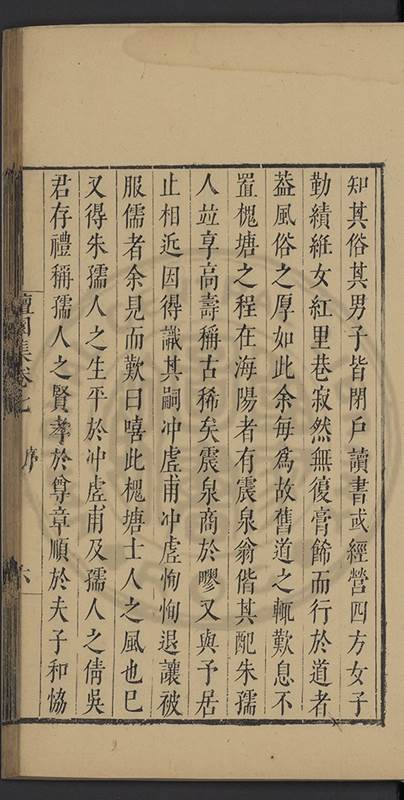 知其俗其男子皆閉戶讀書或經營四方女子
勤績絍女紅里巷寂然無復膏餙而行於道者
葢風俗之厚如此余每爲故舊道之輒歎息不
置槐塘之程在海陽者有震泉翁偕其配朱孺
人竝享高壽稱古稀矣震泉商於鄝又與予居
止相近因得識其嗣冲虛甫冲虛恂恂退讓被
服儒者余見而歎曰嘻此槐塘士人之風也巳
又得朱孺人之生平於冲虛甫及孺人之倩吳
君存禮稱孺人之賢孝於尊章順於夫子和恊
集卷七
序
六